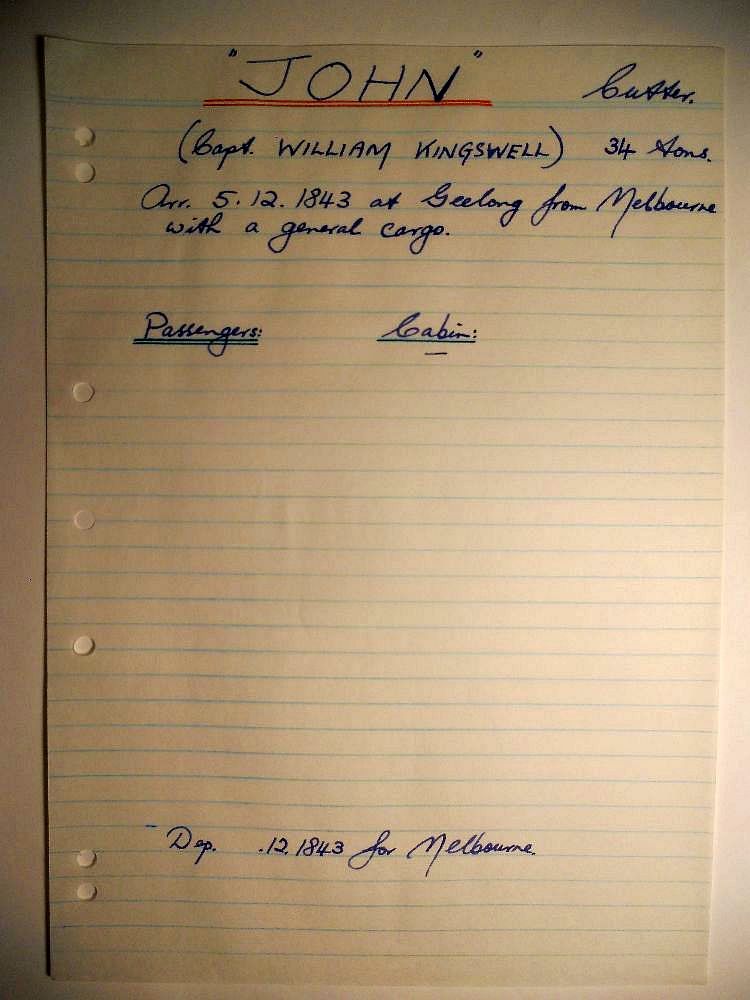 "JOHN" Cutter.
(Capt. WILLIAM KINGSWELL) 34 tons.
Arr. 5.12.1843 at Geelong from Melbourne
with a general cargo.
Passengers: Cabin:
—
- Dep. .12.1843 for Melbourne.